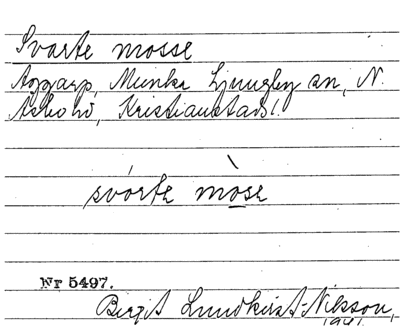 Svarte mosse
Aggarp, Munka Ljungby sn, N.
Åsbo hd, Kristianstads l.
svárte mòse
Nr 5497.
Birgit Lundkvist-Nilsson,
1941.